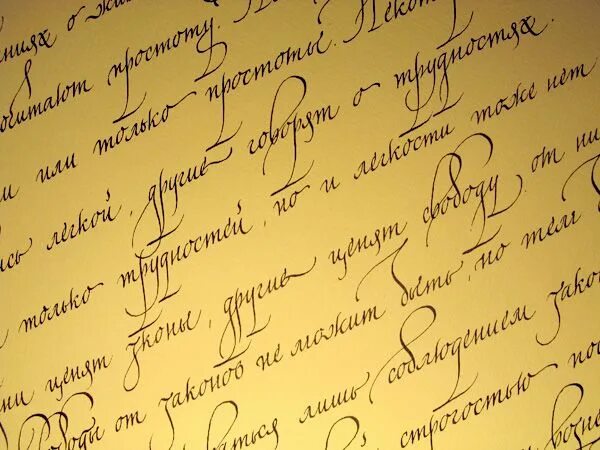 ниях о жи
очитают простоту. Н
и или только простоты. Некот
сь легкой, другие говорят о трудностях.
только трудностей, но и легкости тоже нет
ни ценят законы, другие ценят свободу от ни
вободы от законов неможит быть, но тем
ваться лишь соблюдением закон
строгостью пос
возне